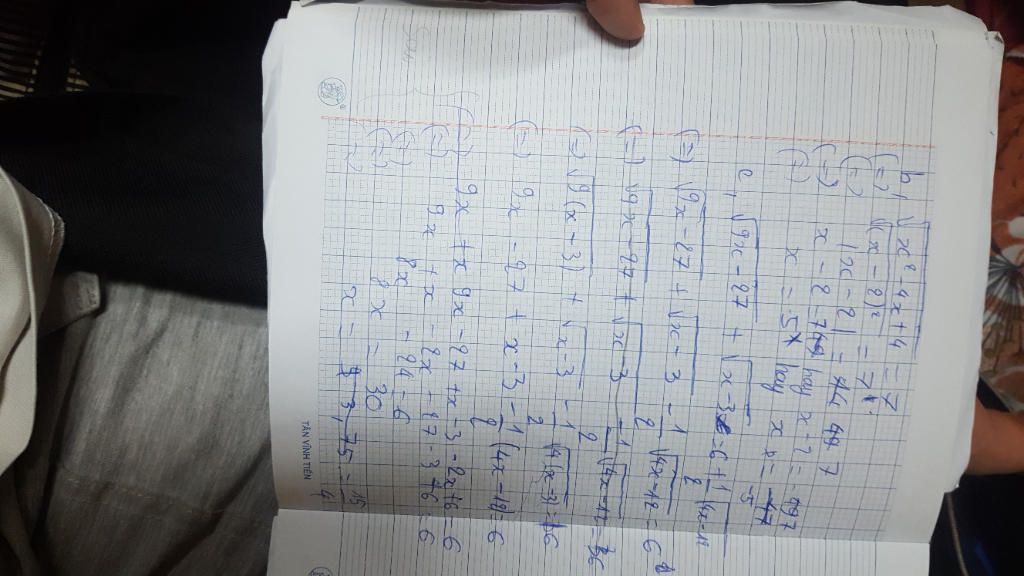 b, √x² - 4x + 4 = 7
(=) √(x - 2)² = 7
(=) |x - 2| = 7
(=) x - 2 = 7 hay x - 2 = -7
(=) x = hay x = -5
c, √9x - 27 + √x - 3 = 6 + 1/2 √4x - 12
(=) √9x - 27 + √x - 3 - 1/2 √4x - 12 = 6
(=) √9x - 27 + √x - 3 - 1/2 √4x - 12 = 6
(=) √9(x - 3) + √x - 3 - 1/2 √4(x - 3) = 6
(=) 9x - 27 + x - 3 - 1/2 (4x - 12) = 6
(=) 9x - 27 + x - 3 - 2x + 6 = 6
(=) 9x + x - 2x - 27 - 3 + 6 = 6
(=) 8x - 24 = 6
(=) 8x = 30
(=) x = 3,75 = 15/4
TÂN VĨNH TIẾN